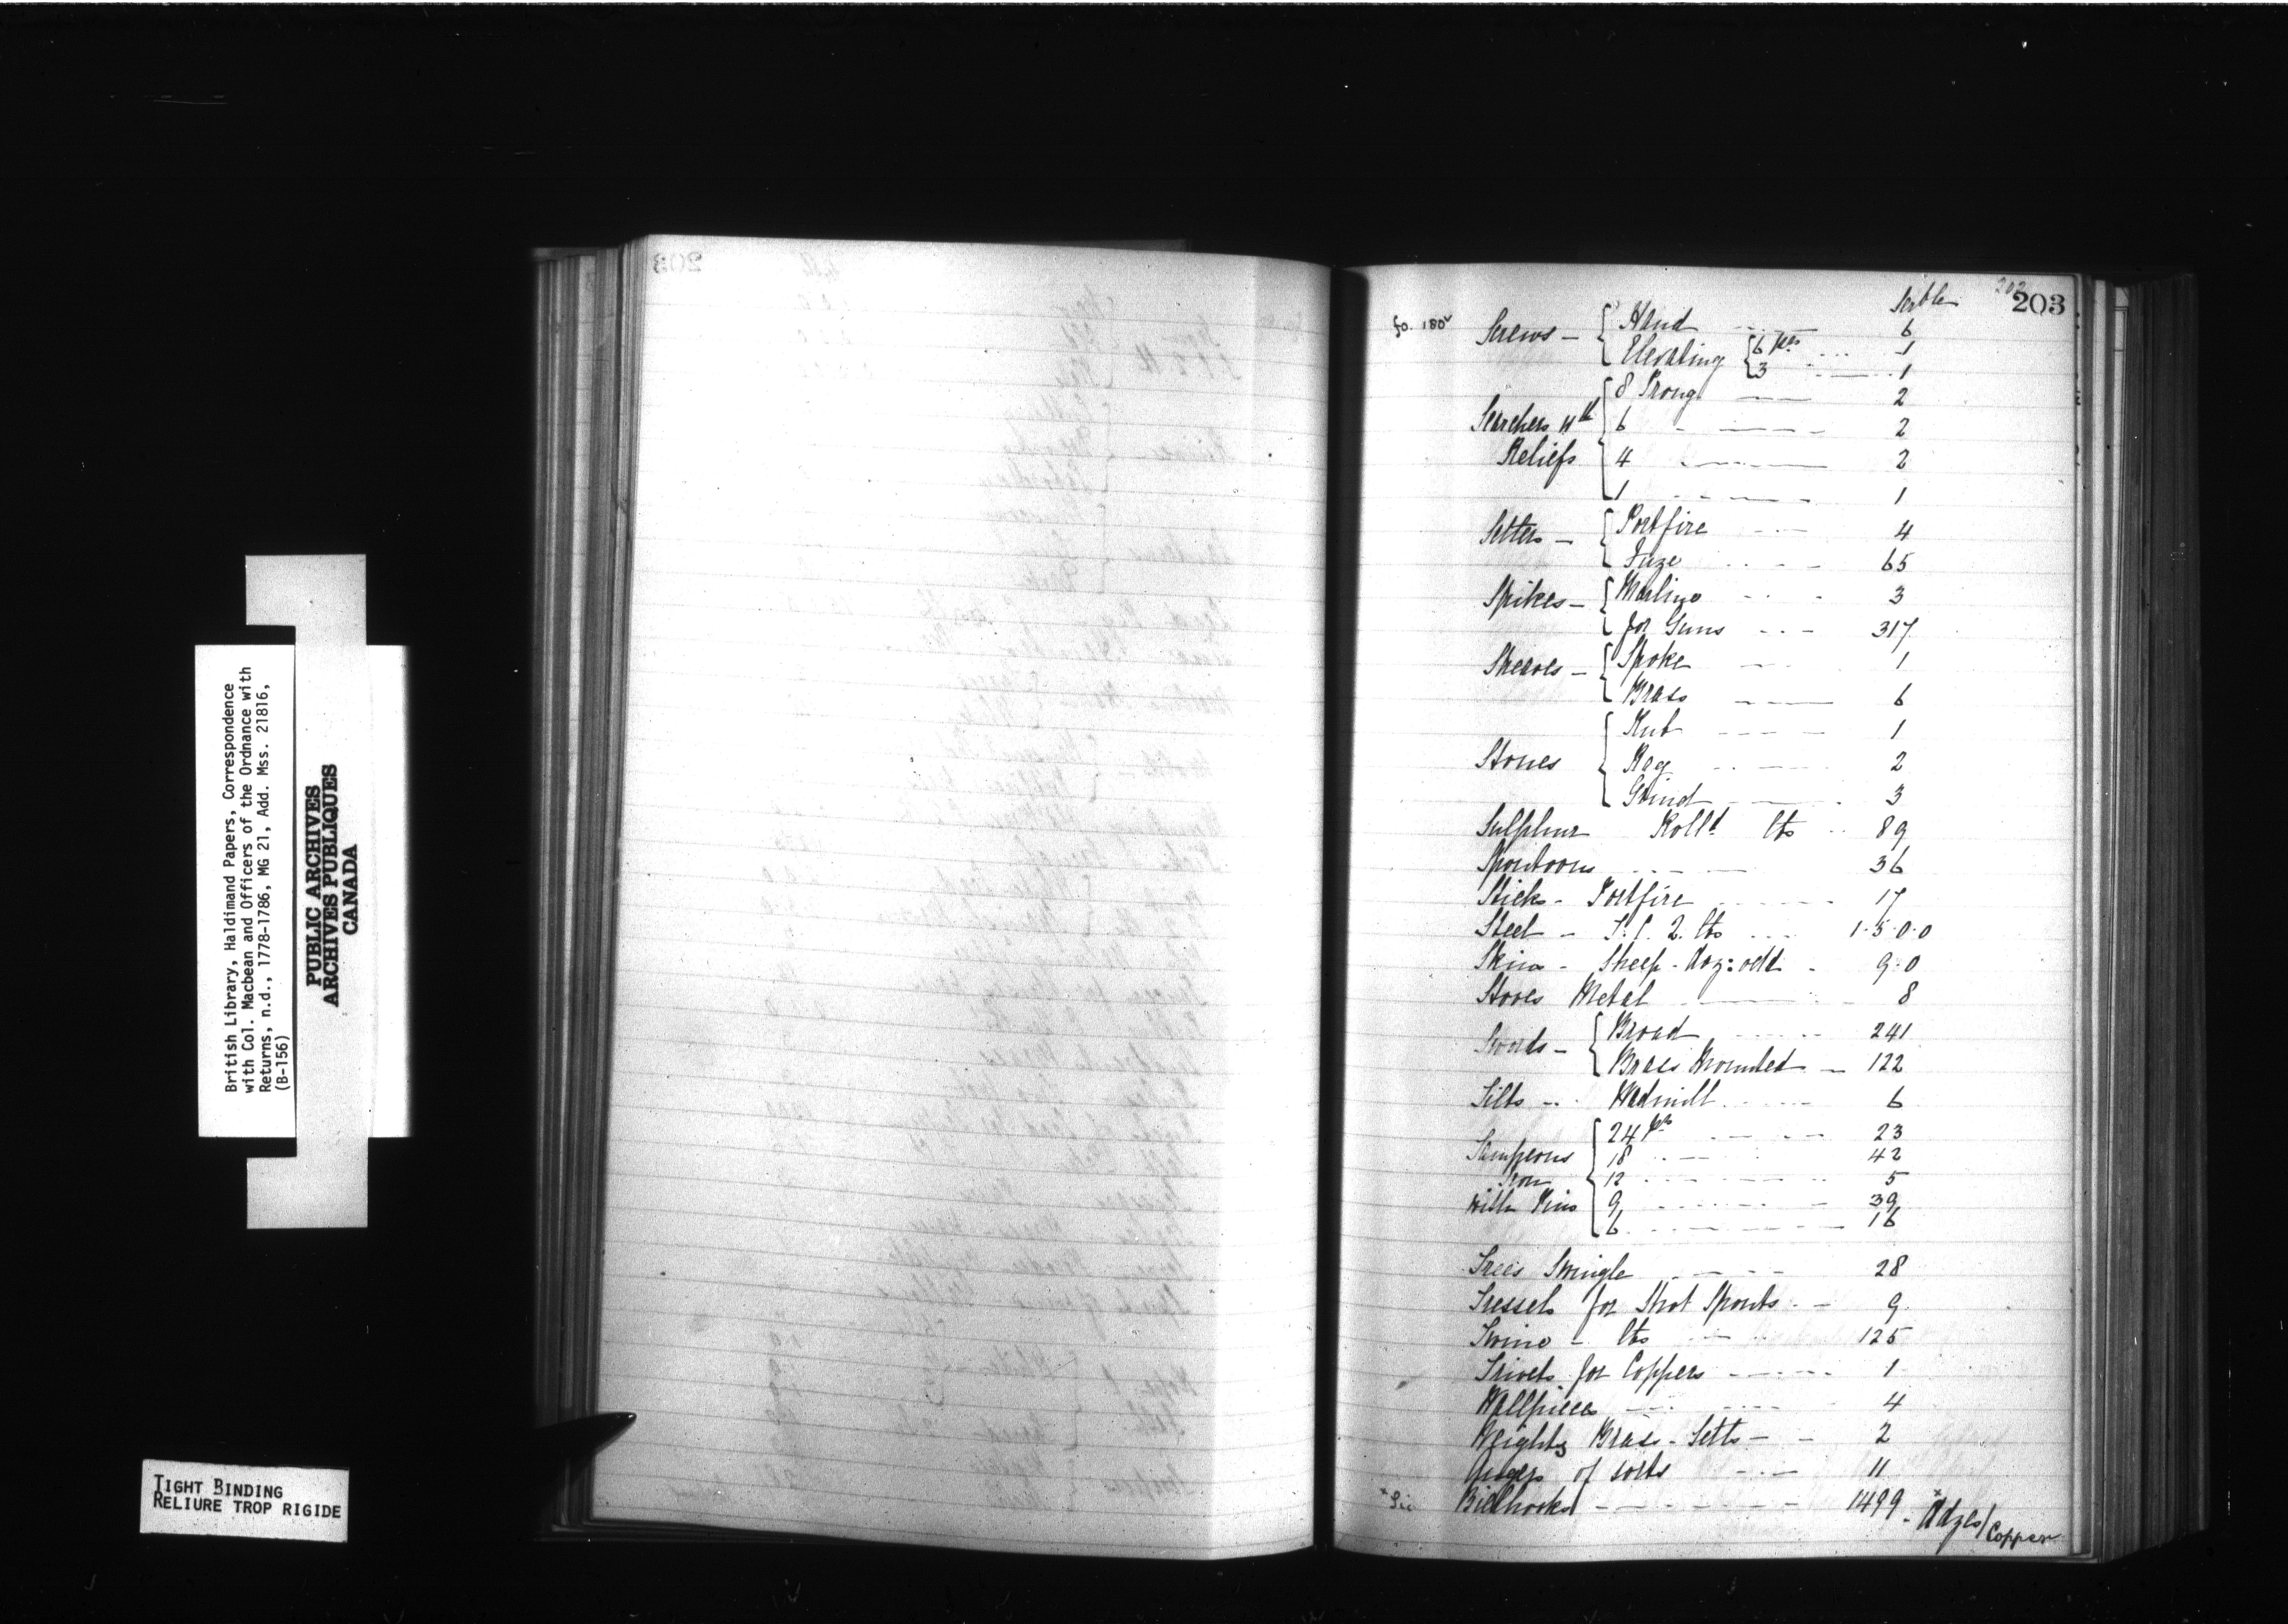 British Library, Haldimand Papers, Correspondence
with Col. Macbean and Officers of the Ordnance with
Returns, n.d., 1778-1786, MG 21, Add. Mss. 21816,
(B-156)
PUBLIC ARCHIVES
ARCHIVES PUBLIQUES
CANADA
TIGHT BINDING
RELIURE TROP RIGIDE
202
203
Serble
fo. 180v
Screws - Hand 6
Elevating 6 prs 1
3 1
Searchers wth Reliefs 8 Prong 2
6 2
4 2
1 1
Setters - Portfire 4
Fuze 65
Spikes - Marline 3
for Guns 317
Sheaves - Spoke 1
Brass 6
Stones Rub 1
Rag 2
Grind 3
Sulphur Rolld lbs 89
Spontoons 36
Sticks - Portfire 17
Steel - T. C. 2. lbs 1.5.0.0
Skins - Sheep - doz: odd 9.0
Stoves Metal 8
Swords - Broad 241
Brass Mounted 122
Tilts - Wadmilt 6
Tampeons Iron With Pins 24 prs 23
18 42
12 5
9 39
6 16
Trees Swingle 28
Tressels for Shot Spouts 9
Twine - lbs 125
Trivets for Coppers 1
Wallpieces 4
Weights Brass - Setts 2
of sorts 11
* Sic Billhooks 1499 - * Adzes / Copper